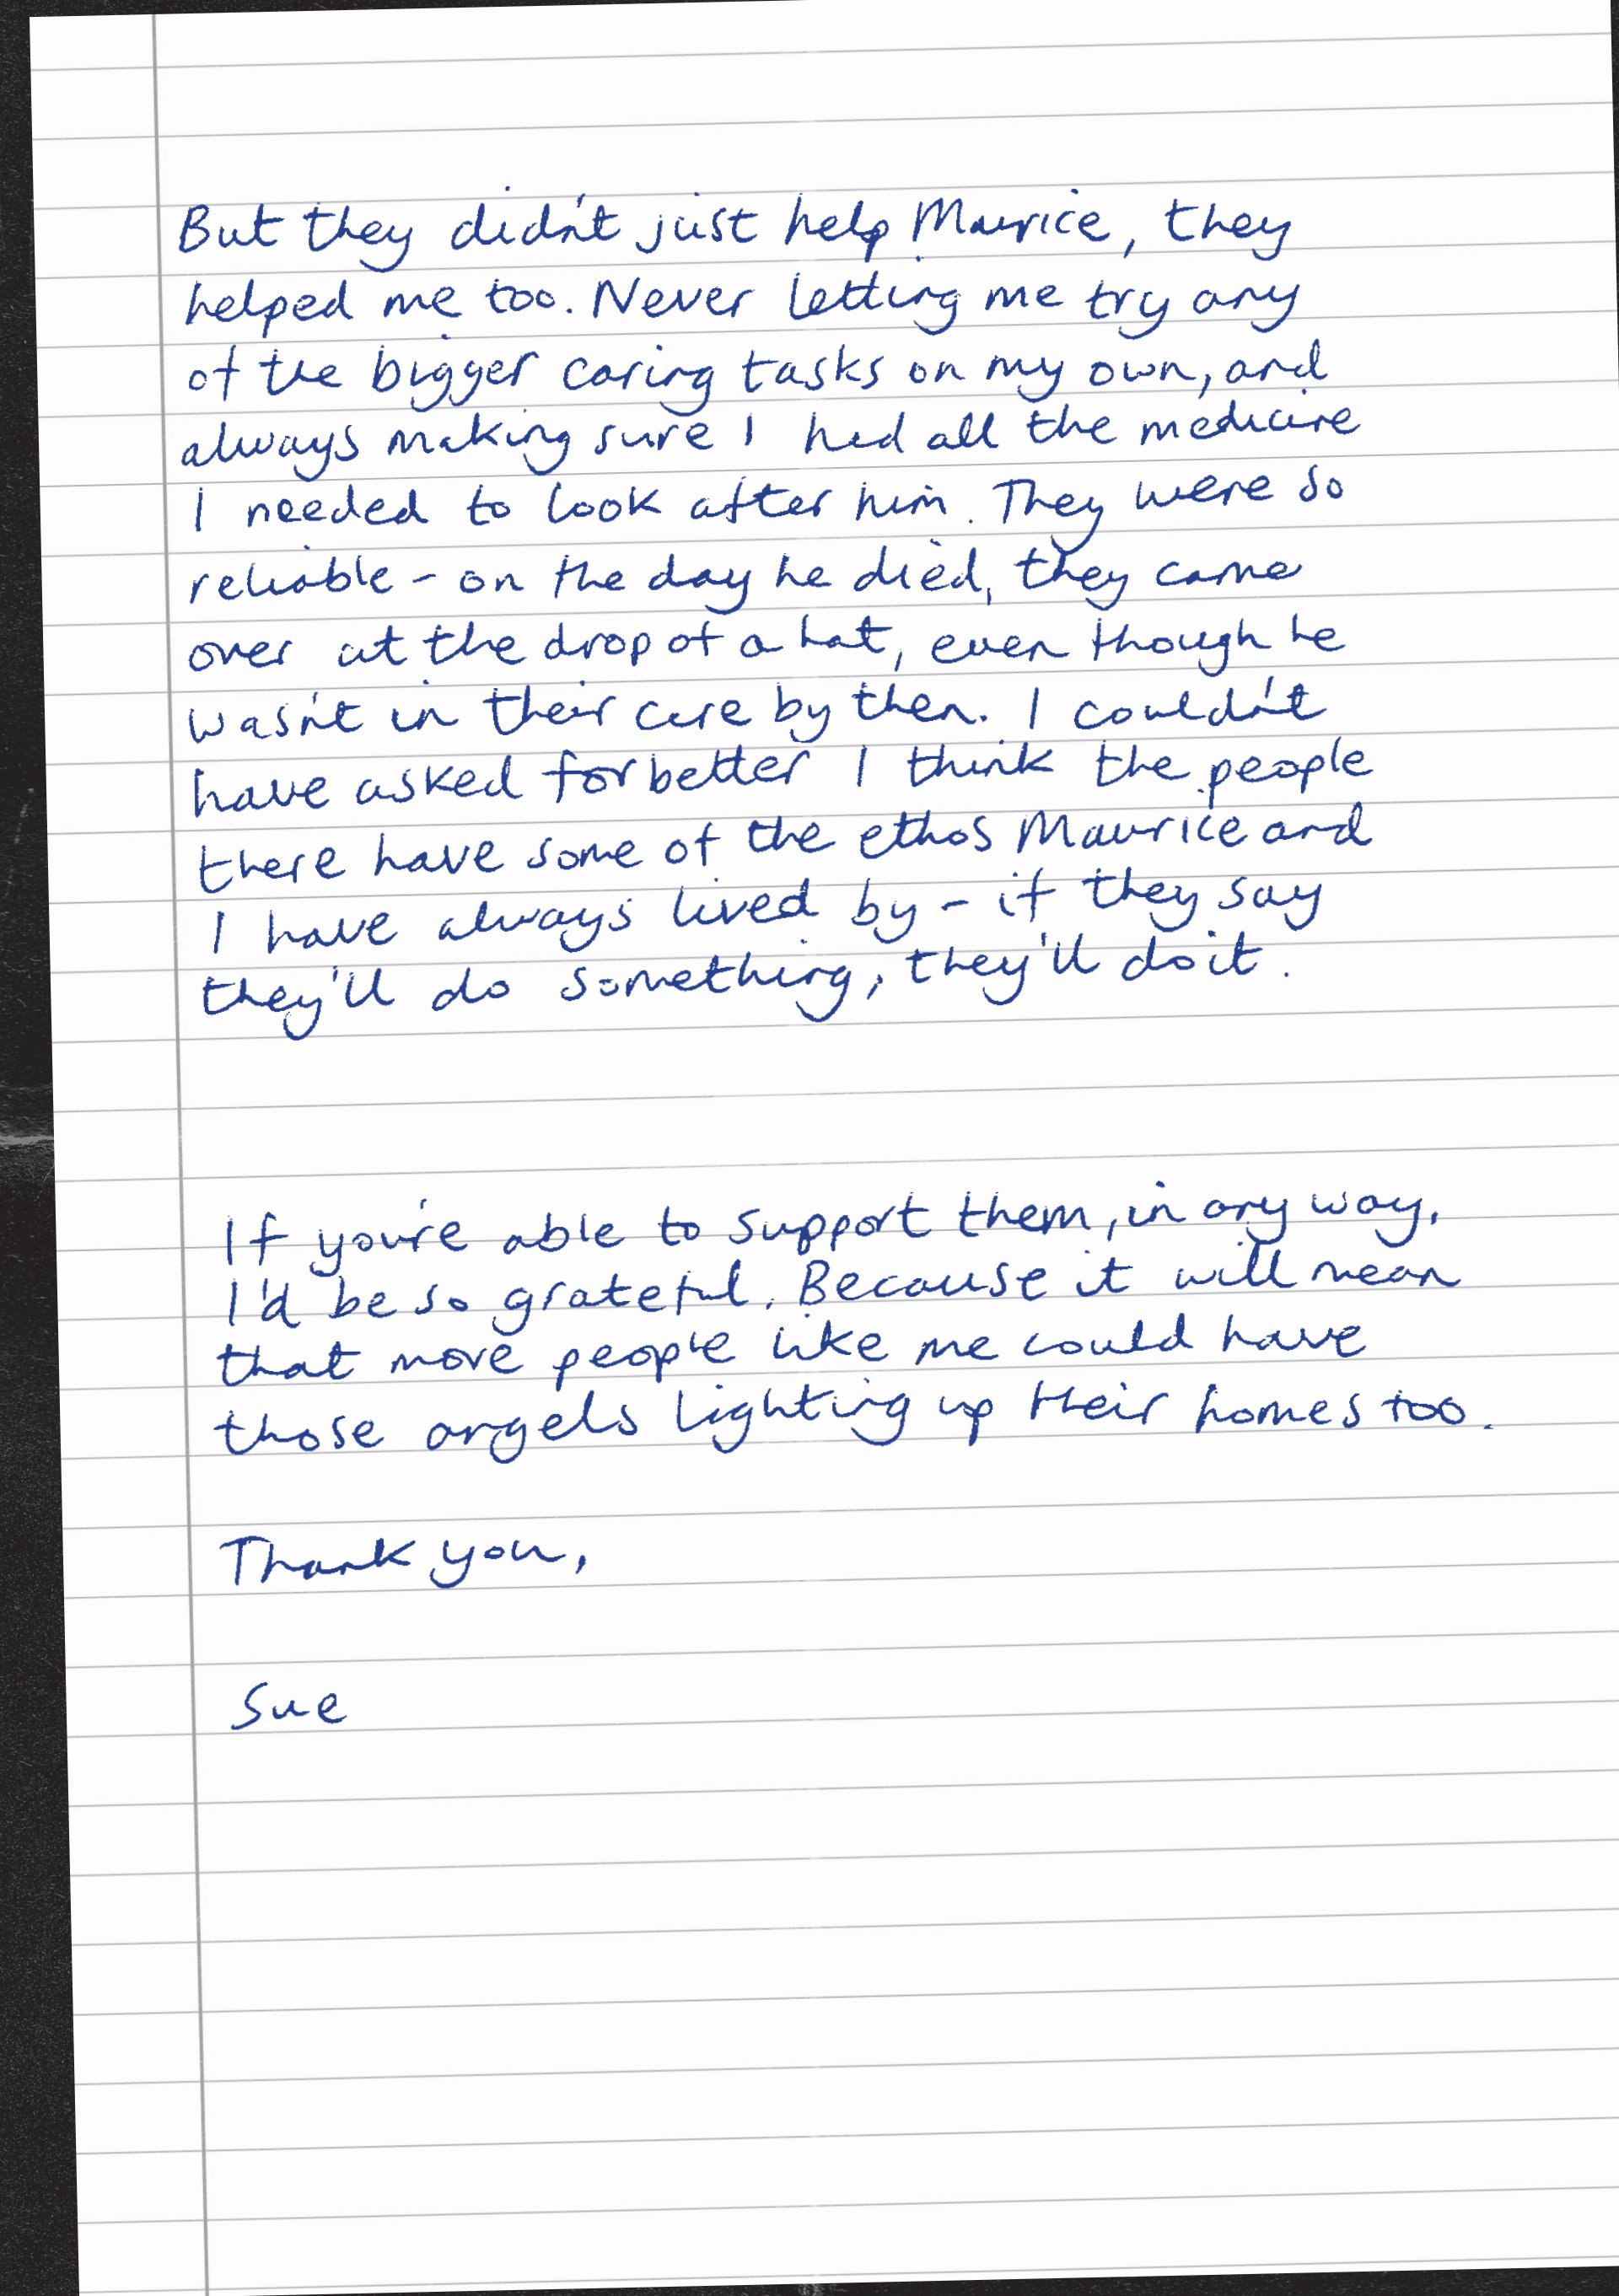 But they didn't just help Maurice, they
helped me too. Never letting me try any
of the bigger caring tasks on my own, and
always making sure I had all the medicine
I needed to look after him. They were so
reliable - on the day he died, they came
over at the drop of a hat, even though he
wasn't in their care by then. I couldn't
have asked for better I think the people
there have some of the ethos Maurice and
I have always lived by - if they say
they'll do something, they'll do it.
If you're able to support them, in any way,
I'd be so grateful. Because it will mean
that more people like me could have
those angels lighting up their homes too.
Thank you,
Sue